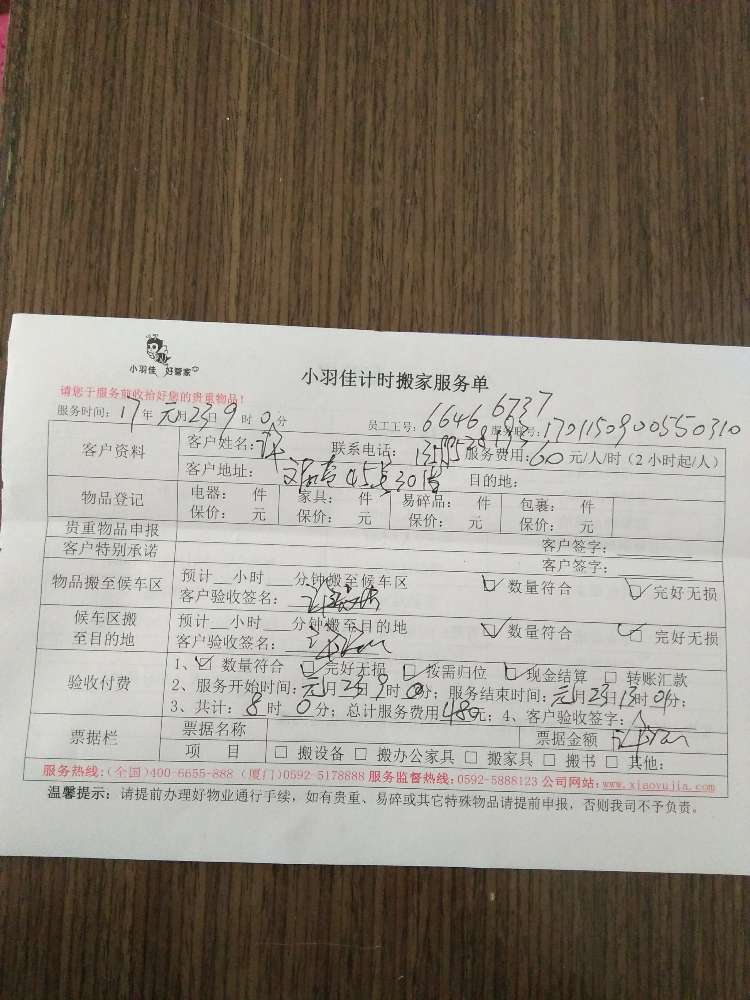 小羽佳 好管家
小羽佳计时搬家服务单
请您于服务前收拾好您的贵重物品！
服务时间：17年元月23日9时0分 员工工号：6646 6737 服务单号：1701150900550310
客户资料 客户姓名：许 联系电话： 服务费用：60元/人/时（2小时起/人）
客户地址： 45号301 目的地：
物品登记 电器： 件 家具： 件 易碎品： 件 包裹： 件
保价： 元 保价： 元 保价： 元 保价： 元
贵重物品申报 客户签字：
客户特别承诺 客户签字：
物品搬至候车区 预计__小时__分钟搬至候车区 ☑数量符合 ☑完好无损
客户验收签名：
候车区搬至目的地 预计__小时__分钟搬至目的地 ☑数量符合 ☑完好无损
客户验收签名：
验收付费 1、☑数量符合 ☑完好无损 ☑按需归位 ☑现金结算 □转账汇款
2、服务开始时间：元月23日9时0分；服务结束时间：元月23日13时0分；
3、共计：8时0分；总计服务费用480元；4、客户验收签字：
票据栏 票据名称 票据金额
项 目 □搬设备 □搬办公家具 □搬家具 □搬书 □其他：
服务热线：（全国）400-6655-888（厦门）0592-5178888 服务监督热线：0592-5888123 公司网站：www.xiaoyujia.com
温馨提示：请提前办理好物业通行手续，如有贵重、易碎或其它特殊物品请提前申报，否则我司不予负责。